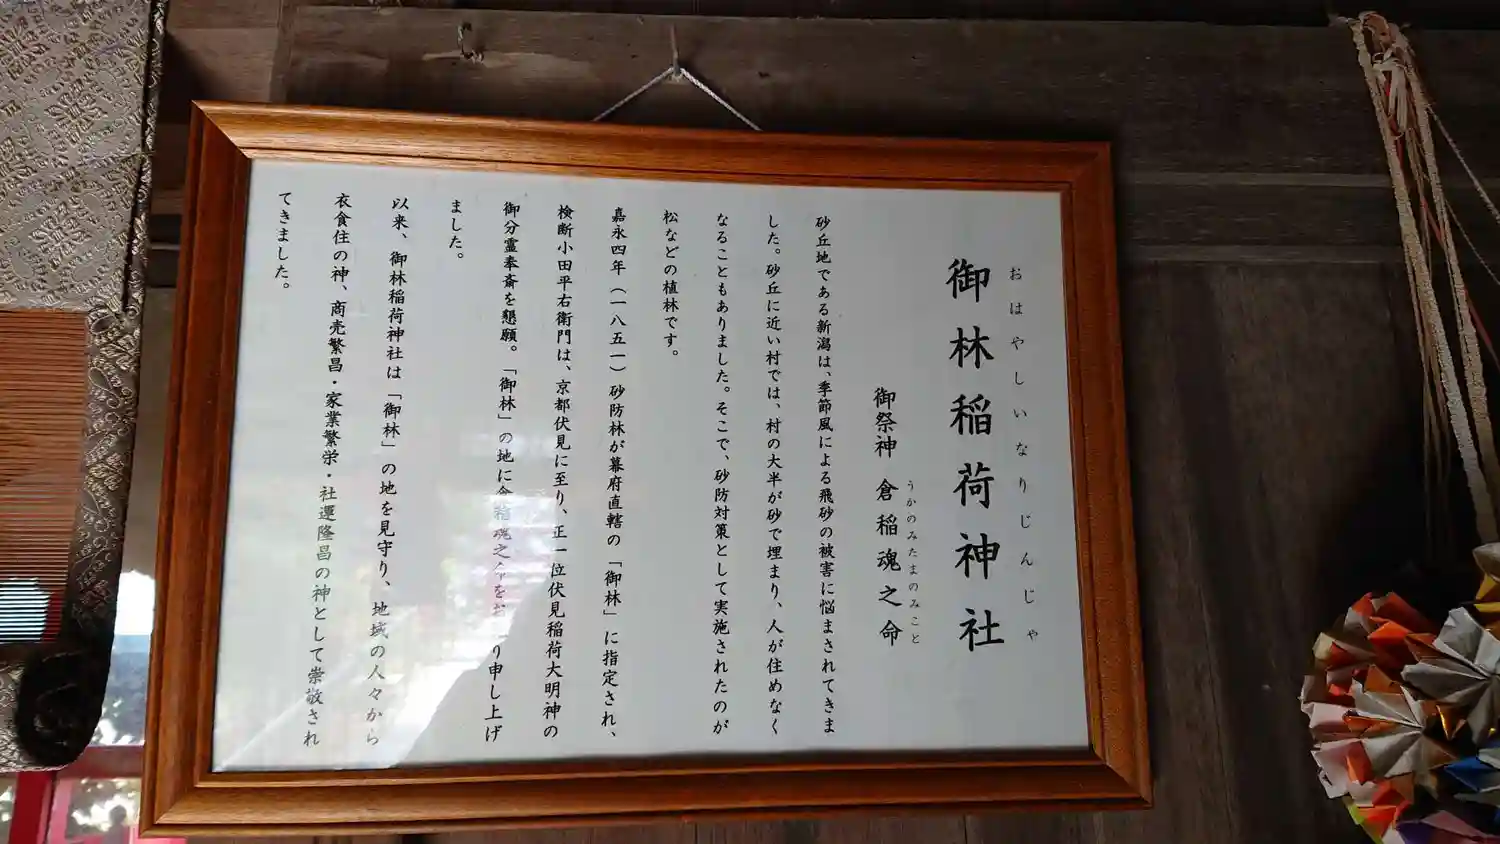 おはやしいなりじんじゃ
御林稲荷神社
うかのみたまのみこと
御祭神 倉稲魂之命
砂丘地である新潟は、季節風による飛砂の被害に悩まされてきま
した。砂丘に近い村では、村の大半が砂で埋まり、人が住めなく
なることもありました。そこで、砂防対策として実施されたのが
松などの植林です。
嘉永四年(一八五一)砂防林が幕府直轄の「御林」に指定され、
検断小田平右衛門は、京都伏見に至り、正一位伏見稲荷大明神の
御分霊奉斎を懇願。「御林」の地に倉稲魂之命をお祀り申し上げ
ました。
以来、御林稲荷神社は「御林」の地を見守り、地域の人々から
衣食住の神、商売繁昌・家業繁栄・社運隆昌の神として崇敬され
てきました。